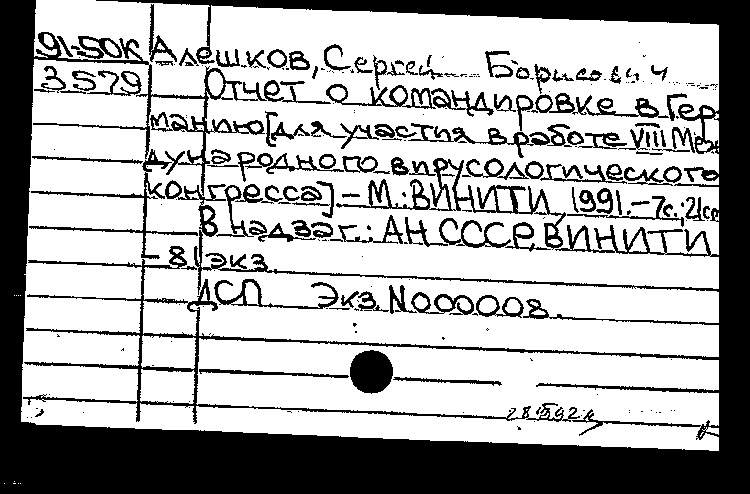 91-50К Алешков, Сергей Борисович
3579 Отчет о командировке в Гер-
манию [для участия в работе VIII Меж
дународного вирусологического
конгресса]. – М.: ВИНИТИ, 1991. – 7с.; 21см
В надзаг.: АН СССР, ВИНИТИ
– 81 экз.
ДСП. Экз. N000008.